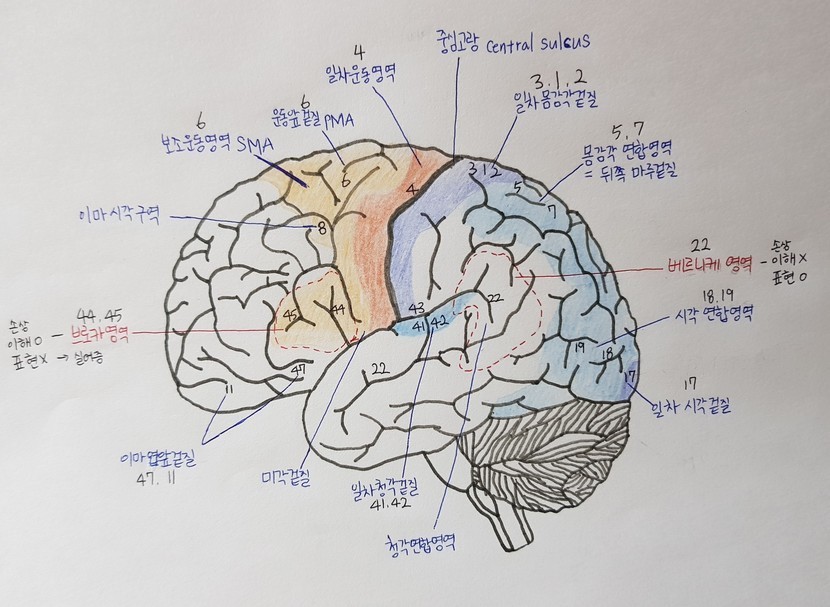 중심고랑 central sulcus
4
일차운동영역
3.1.2
일차몸감각겉질
6
운동앞겉질 PMA
6
보조운동영역 SMA
5,7
몸감각 연합영역
= 뒤쪽 마루겉질
이마시각구역
22
베르니케 영역 -
손상
이해 X
표현 O
18.19
시각 연합영역
44.45
브로카영역
손상
이해 O -
표현 X → 실어증
17
일차 시각겉질
이마엽앞겉질
47. 11
미각겉질
일차청각겉질
41.42
청각연합영역
6
4
3 1 2
5
7
8
45
44
43
41 42
22
47
11
22
19
18
17